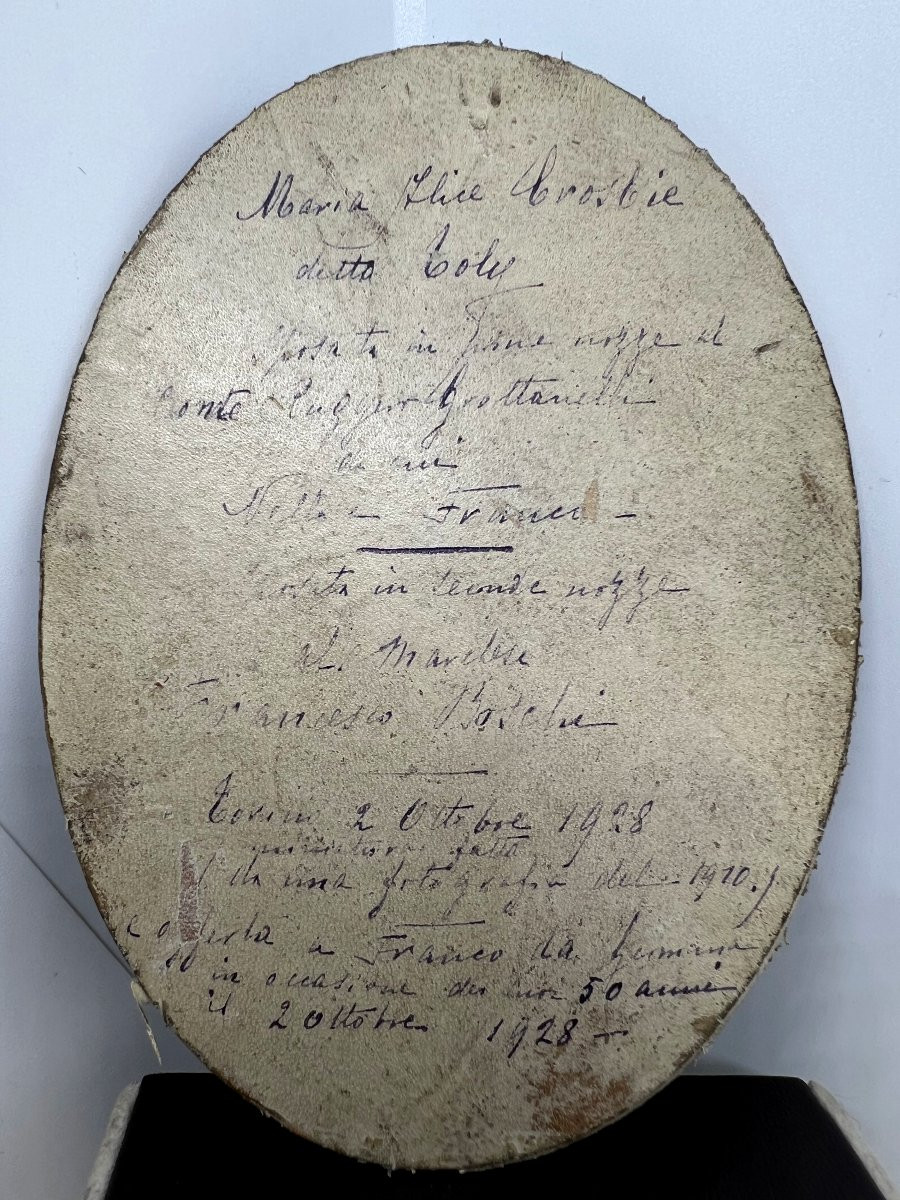 Maria Alice Crosbie
detta Toly
Sposata in prime nozze al
Conte Ruggero Grottanelli
da cui
Nella e Franco -
Sposata in seconde nozze
al Marchese
Francesco Boschi
Torino 2 Ottobre 1928
miniatura fatta
(da una fotografia del 1910.)
e offerta a Franco da Gemma
in occasione dei suoi 50 anni
il 2 Ottobre 1928 -